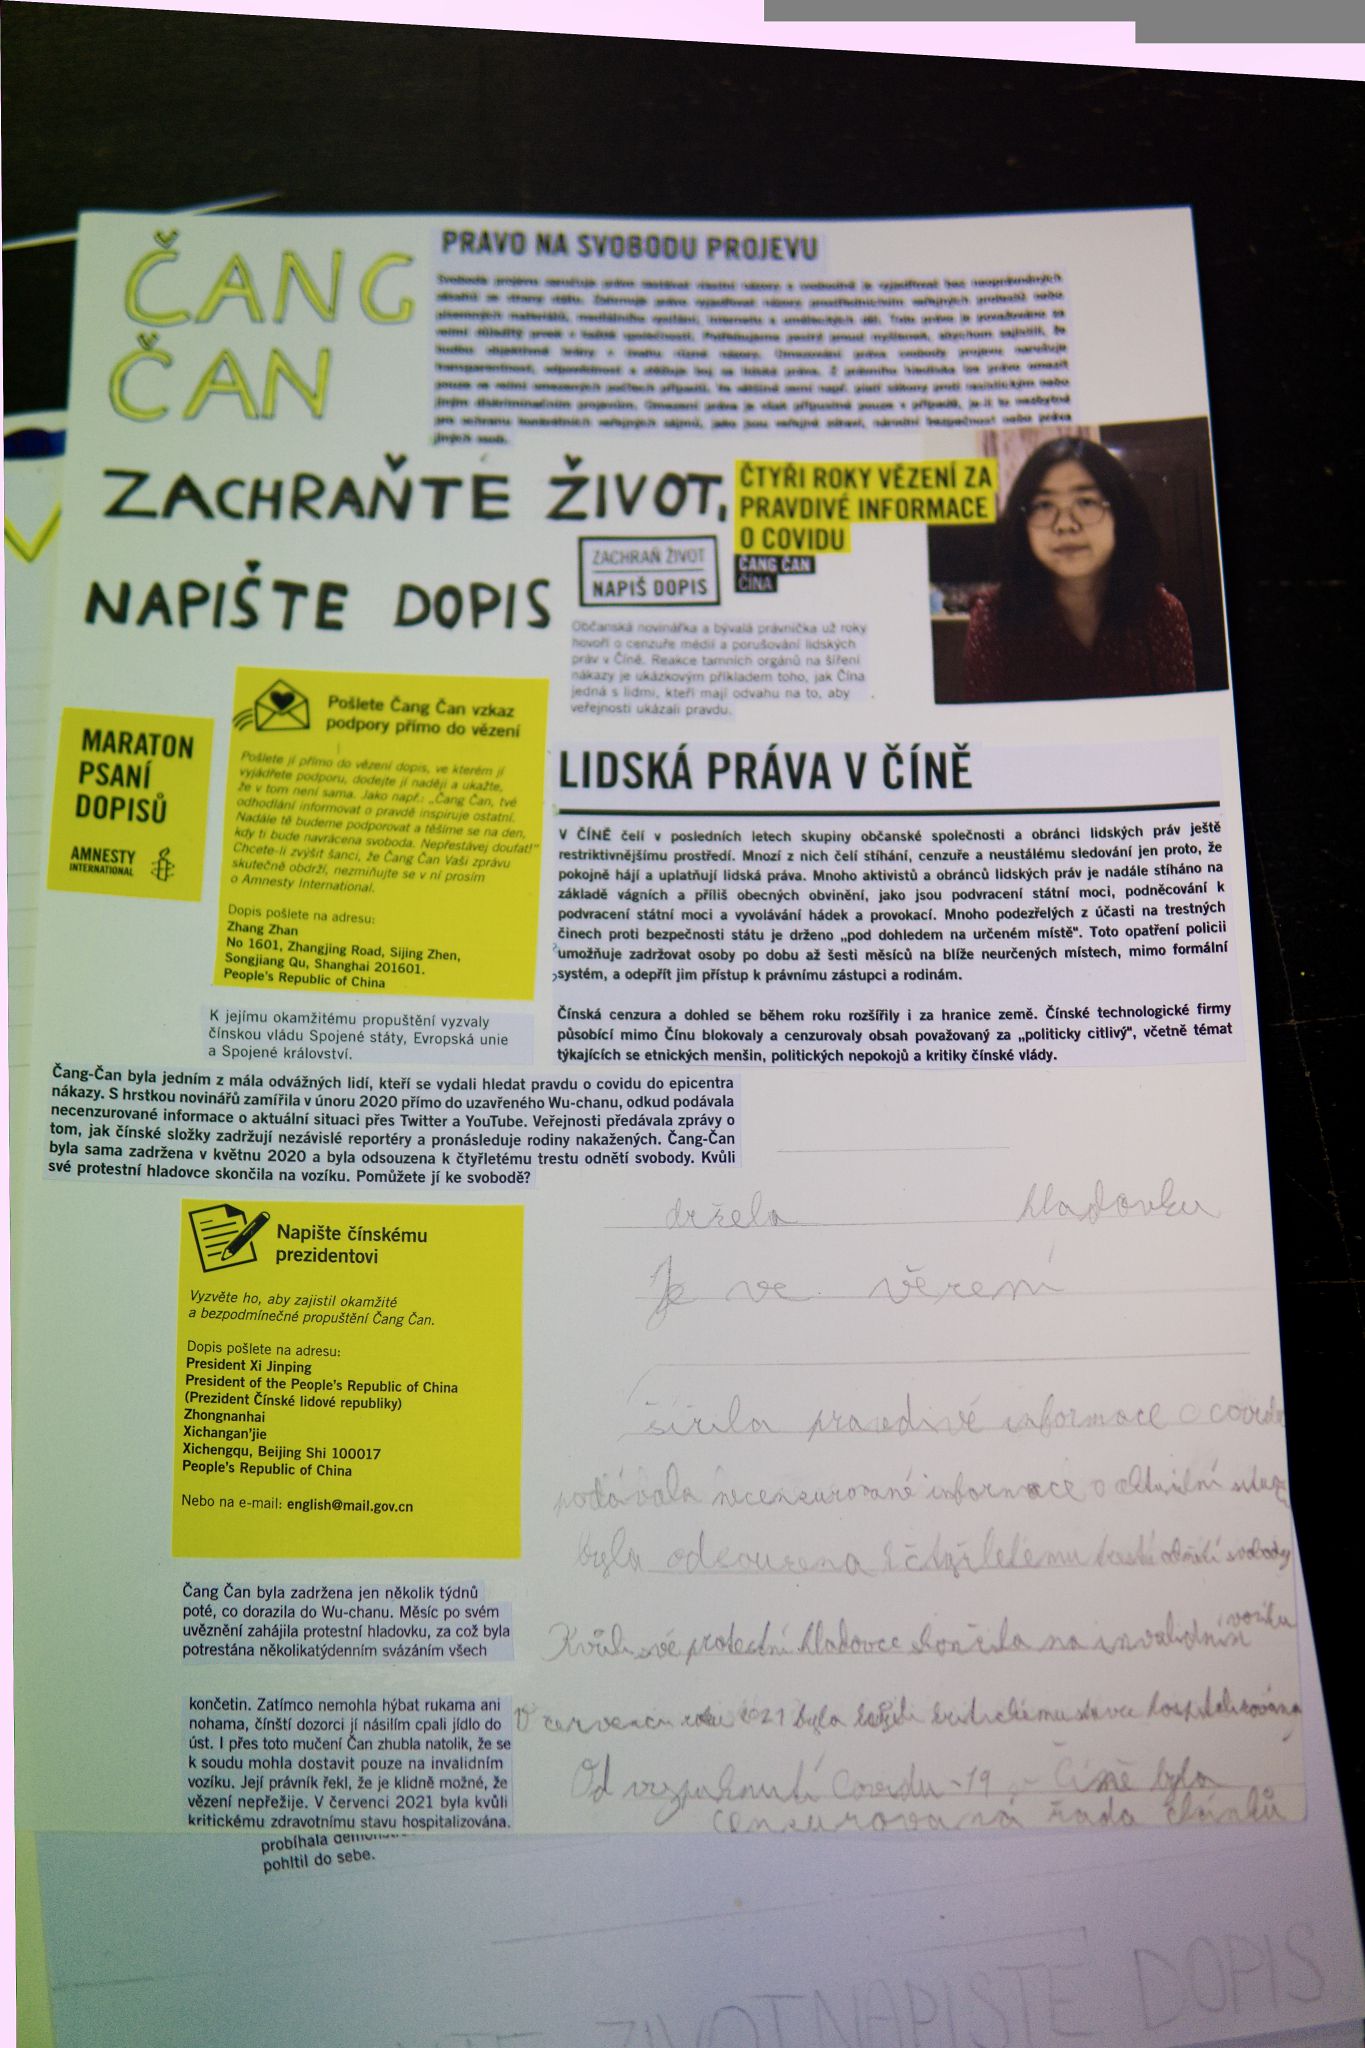 ČANG
ČAN
PRAVO NA SVOBODU PROJEVU
ZACHRAŇTE ŽIVOT,
NAPIŠTE DOPIS
ČTYŘI ROKY VĚZENÍ ZA
PRAVDIVÉ INFORMACE
O COVIDU
ČANG ČAN
ČÍNA
ZACHRAŇ ŽIVOT
NAPIŠ DOPIS
Občanská novinářka a bývalá právnička už roky
hovoří o cenzuře médií a porušování lidských
práv v Číně. Reakce tamních orgánů na šíření
nákazy je ukázkovým příkladem toho, jak Čína
jedná s lidmi, kteří mají odvahu na to, aby
veřejnosti ukázali pravdu.
MARATON
PSANÍ
DOPISŮ
AMNESTY
INTERNATIONAL
Pošlete Čang Čan vzkaz
podpory přímo do vězení
Pošlete jí přímo do vězení dopis, ve kterém jí
vyjádřete podporu, dodejte jí naději a ukažte,
že v tom není sama. Jako např.: „Čang Čan, tvé
odhodlání informovat o pravdě inspiruje ostatní.
Nadále tě budeme podporovat a těšíme se na den,
kdy ti bude navrácena svoboda. Nepřestávej doufat!"
Chcete-li zvýšit šanci, že Čang Čan Vaši zprávu
skutečně obdrží, nezmiňujte se v ní prosím
o Amnesty International.
Dopis pošlete na adresu:
Zhang Zhan
No 1601, Zhangjing Road, Sijing Zhen,
Songjiang Qu, Shanghai 201601.
People's Republic of China
LIDSKÁ PRÁVA V ČÍNĚ
V ČÍNĚ čelí v posledních letech skupiny občanské společnosti a obránci lidských práv ještě
restriktivnějšímu prostředí. Mnozí z nich čelí stíhání, cenzuře a neustálému sledování jen proto, že
pokojně hájí a uplatňují lidská práva. Mnoho aktivistů a obránců lidských práv je nadále stíháno na
základě vágních a příliš obecných obvinění, jako jsou podvracení státní moci, podněcování k
podvracení státní moci a vyvolávání hádek a provokací. Mnoho podezřelých z účasti na trestných
činech proti bezpečnosti státu je drženo „pod dohledem na určeném místě". Toto opatření policii
umožňuje zadržovat osoby po dobu až šesti měsíců na blíže neurčených místech, mimo formální
systém, a odepřít jim přístup k právnímu zástupci a rodinám.
Čínská cenzura a dohled se během roku rozšířily i za hranice země. Čínské technologické firmy
působící mimo Čínu blokovaly a cenzurovaly obsah považovaný za „politicky citlivý", včetně témat
týkajících se etnických menšin, politických nepokojů a kritiky čínské vlády.
K jejímu okamžitému propuštění vyzvaly
čínskou vládu Spojené státy, Evropská unie
a Spojené království.
Čang-Čan byla jedním z mála odvážných lidí, kteří se vydali hledat pravdu o covidu do epicentra
nákazy. S hrstkou novinářů zamířila v únoru 2020 přímo do uzavřeného Wu-chanu, odkud podávala
necenzurované informace o aktuální situaci přes Twitter a YouTube. Veřejnosti předávala zprávy o
tom, jak čínské složky zadržují nezávislé reportéry a pronásleduje rodiny nakažených. Čang-Čan
byla sama zadržena v květnu 2020 a byla odsouzena k čtyřletému trestu odnětí svobody. Kvůli
své protestní hladovce skončila na vozíku. Pomůžete jí ke svobodě?
Napište čínskému
prezidentovi
Vyzvěte ho, aby zajistil okamžité
a bezpodmínečné propuštění Čang Čan.
Dopis pošlete na adresu:
President Xi Jinping
President of the People's Republic of China
(Prezident Čínské lidové republiky)
Zhongnanhai
Xichangan'jie
Xichengqu, Beijing Shi 100017
People's Republic of China
Nebo na e-mail: english@mail.gov.cn
Čang Čan byla zadržena jen několik týdnů
poté, co dorazila do Wu-chanu. Měsíc po svém
uvěznění zahájila protestní hladovku, za což byla
potrestána několikatýdenním svázáním všech
končetin. Zatímco nemohla hýbat rukama ani
nohama, čínští dozorci jí násilím cpali jídlo do
úst. I přes toto mučení Čan zhubla natolik, že se
k soudu mohla dostavit pouze na invalidním
vozíku. Její právník řekl, že je klidně možné, že
vězení nepřežije. V červenci 2021 byla kvůli
kritickému zdravotnímu stavu hospitalizována.
držela hladovku
Je ve vězení
šířila pravdivé informace o covidu
podávala necenzurované informace o aktuální
byla odsouzena k čtyřletému odnětí svobody
Kvůli své protestní hladovce skončila na invalidním vozíku
V červenci roku 2021 byla kvůli kritickému stavu hospitalizována
Od vypuknutí Covidu-19 v Číně byla
cenzurovaná řada článků
probíhala
pohltil do sebe.
ŽIVOT NAPIŠTE DOPIS